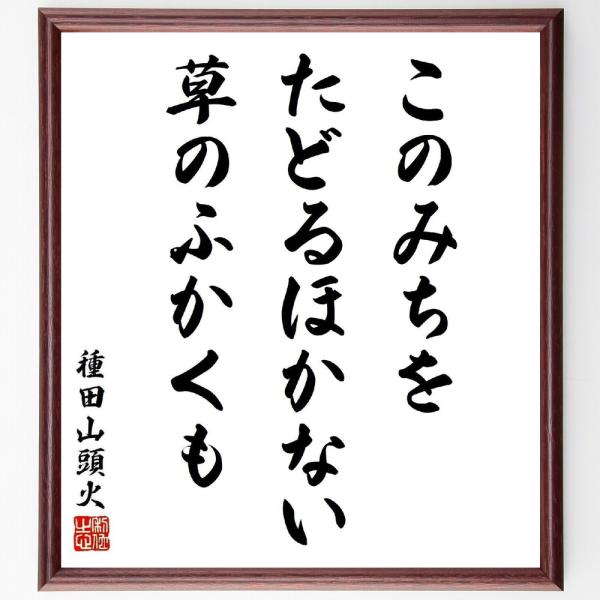 このみちを
たどるほかない
草のふかくも
種田山頭火